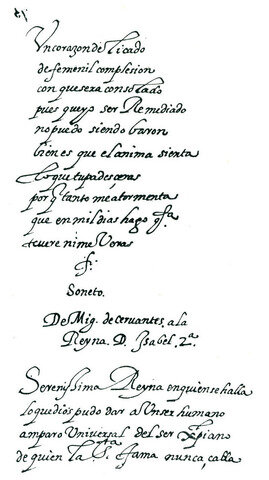 Un corazon delicado
de femenil complesion
con que sera consolado
pues que yo ser Remediado
no puedo siendo baron
bien es que el anima sienta
lo que tu padesceras
por q tanto me atormenta
que en mil dias hago qta
te vere ni me Veras
f.
Soneto.
De Mig. de cervantes. a la
Reyna. D. Isabel. 2ª.
Serenissima Reyna en quien se halla
lo que dios pudo dar a Un ser humano
amparo Universal del ser xpiano
de quien la Sta. fama nunca calla